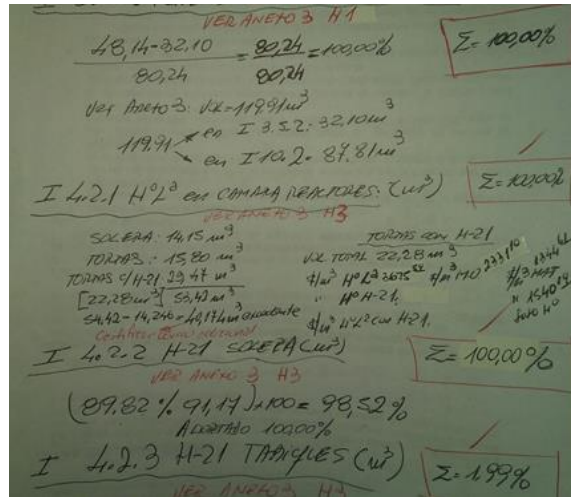 VER ANEXO 3 H1
48,14-32,10 = 80,24 = 100,00%
80,24 80,24
Σ= 100,00%
VER ANEXO 3: VOL=119,91m³
119,91 en I 3.5.2: 32,10m³
en I 10.2- 87,81m³
I 4.2.1 HºLª en CAMARA REACTORES: (m³)
Σ= 100,00%
VER ANEXO 3 H3
SOLERA: 14,15 m³
TORTAS: 15,80 m³
TORTAS C/H-21 29,47 m³
[22,28m³] 53,42 m³
54,42-14,246=40,174m³
TORTAS con H-21
VOL TOTAL 22,28m³
$/m³ HºLª 2675 $/m³ MO 2331 $/m³ MAT 1344
" Hº H-21. " 1540
$/m³ HºLª con H21. Solo Hº
I 4.2.2 H-21 SOLERA (m³)
Σ= 100,00%
VER ANEXO 3 H3
(89.82 % 91,17)×100= 98,52%
ADOPTADO 100,00%
I 4.2.3 H-21 TABIQUES (m³)
Σ= 1,99%
VER ANEXO 3 H3